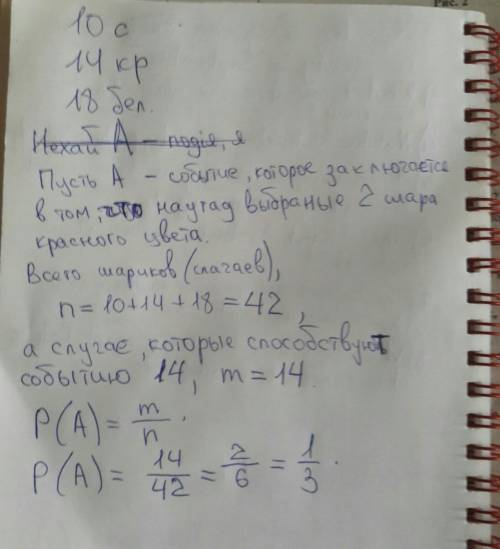 Рис. 2
10 с
14 кр
18 бел.
Нехай А – подія, я
Пусть А – событие, которое заключается
в том, что наугад выбраные 2 шара
красного цвета.
Всего шариков (случаев),
n = 10+14+18 = 42,
а случае, которые способствуют
событию 14, m = 14.
P(A) = m/n.
P(A) = 14/42 = 2/6 = 1/3.